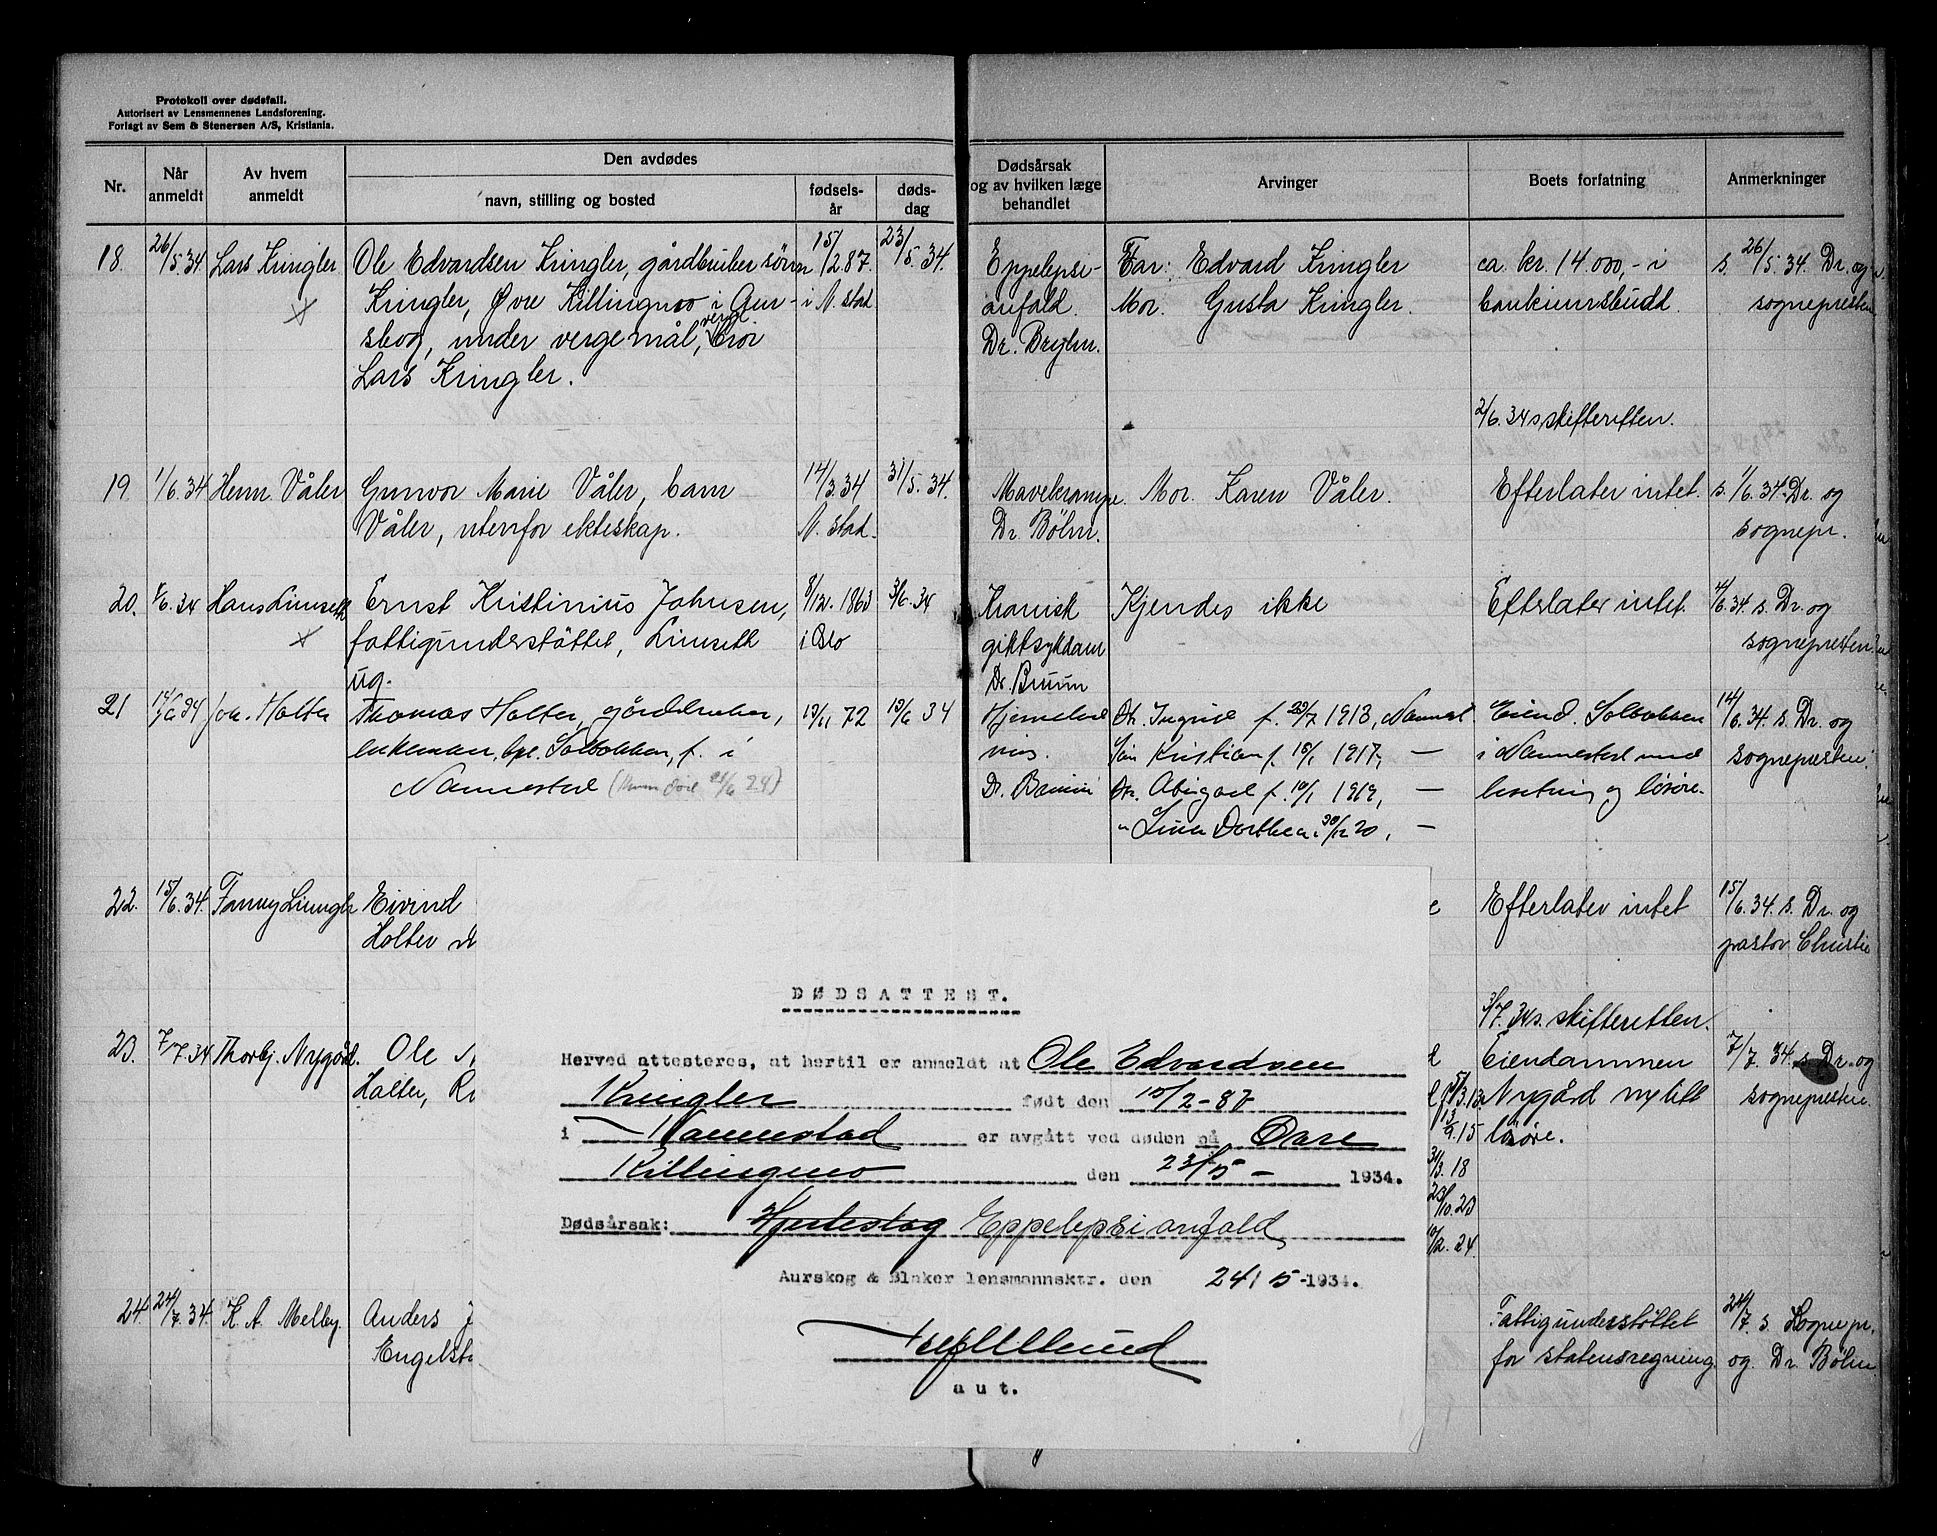 Protokoll over dødsfall.
Autorisert av Lensmennenes Landsforening.
Forlagt av Sem & Stenersen A/S, Kristiania.
Nr.
Når anmeldt
Av hvem anmeldt
Den avdødes
navn, stilling og bosted
fødsels-år
døds-dag
Dødsårsak og av hvilken læge behandlet
Arvinger
Boets forfatning
Anmerkninger
18. 26/5.34 Lars Kringler
Ole Edvardsen Kringler, gårdbruker sønn
Kringler, Øvre Killingmo i Aur-
skog, under vergemål, verge bror
Lars Kringler.
15/2.87.
i N.stad
23/5.34.
Eppelepsi-
anfald.
Dr. Bryhn.
Far: Edvard Kringler
Mor. Gusta Kringler.
ca. kr. 14.000,- i
bankinnskudd.
s. 26/5.34. Dr. og
sognepresten
2/6.34 s. skifteretten.
19. 1/6.34 Herm. Våler
Gunvor Marie Våler, barn
Våler, utenfor ekteskap.
14/3.34
N.stad.
31/5.34.
Mavekrampe.
Dr. Bøhn.
Mor. Karen Våler.
Efterlater intet.
s. 1/6.34. Dr. og
sognepr.
20. 4/6.34 Hans Limseth
Ernst Kristinius Johnsen,
fattigunderstøttet, Limseth
ug.
8/12.1863
i Oslo
3/6.34
Kronisk
giktsykdom
Dr. Bruun
Kjendes ikke
Efterlater intet.
4/6.34. s. Dr. og
sognepresten.
21 14/6 34 Joh. Holter
Thomas Holter, gårdbruker,
enkeman, bpl. Solbakken, f. i
Nannestad
19/11 72
13/6 34
Dr. Bruun
Dtr. Ingrid f. 25/7 1913, Nannest.
Søn Kristian f. 15/1 1917, —
Dtr. Abigael f. 10/1 1919, —
" Lina Dorthea 30/12 20, —
Eiend. Solbakken
i Nannestad med
besetning og løsøre.
14/6.34. s. Dr. og
sognepresten.
22. 15/6.34. Fanny Liungh
Eivind
Holter
Efterlater intet
15/6.34. s. Dr. og
pastor Christie
3/7.34 s. skifteretten.
23. 7/7.34 Thorbj. Nygård.
Ole
Holter,
5/3.13.
13/9.15
31/3.18
23/10.23
10/2.24.
Eiendommen
Nygård
løsøre.
7/7.34. s. Dr. og
sognepresten.
24. 24/7.34. K. A. Melby.
Anders
Engelst
Fattigunderstøttet
for statensregning.
24/7. s. Sognepr.
og. Dr. Bøhn
DØDSATTEST.
Herved attesteres, at hertil er anmeldt at Ole Edvardsen
Kringler født den 15/2-87
i Nannestad er avgått ved døden på Øvre
Killingmo den 23/5- 1934.
Dødsårsak: Hjerteslag Eppelepsianfald
Aurskog & Blaker lensmannsktr. den 24/5-1934.
aut.